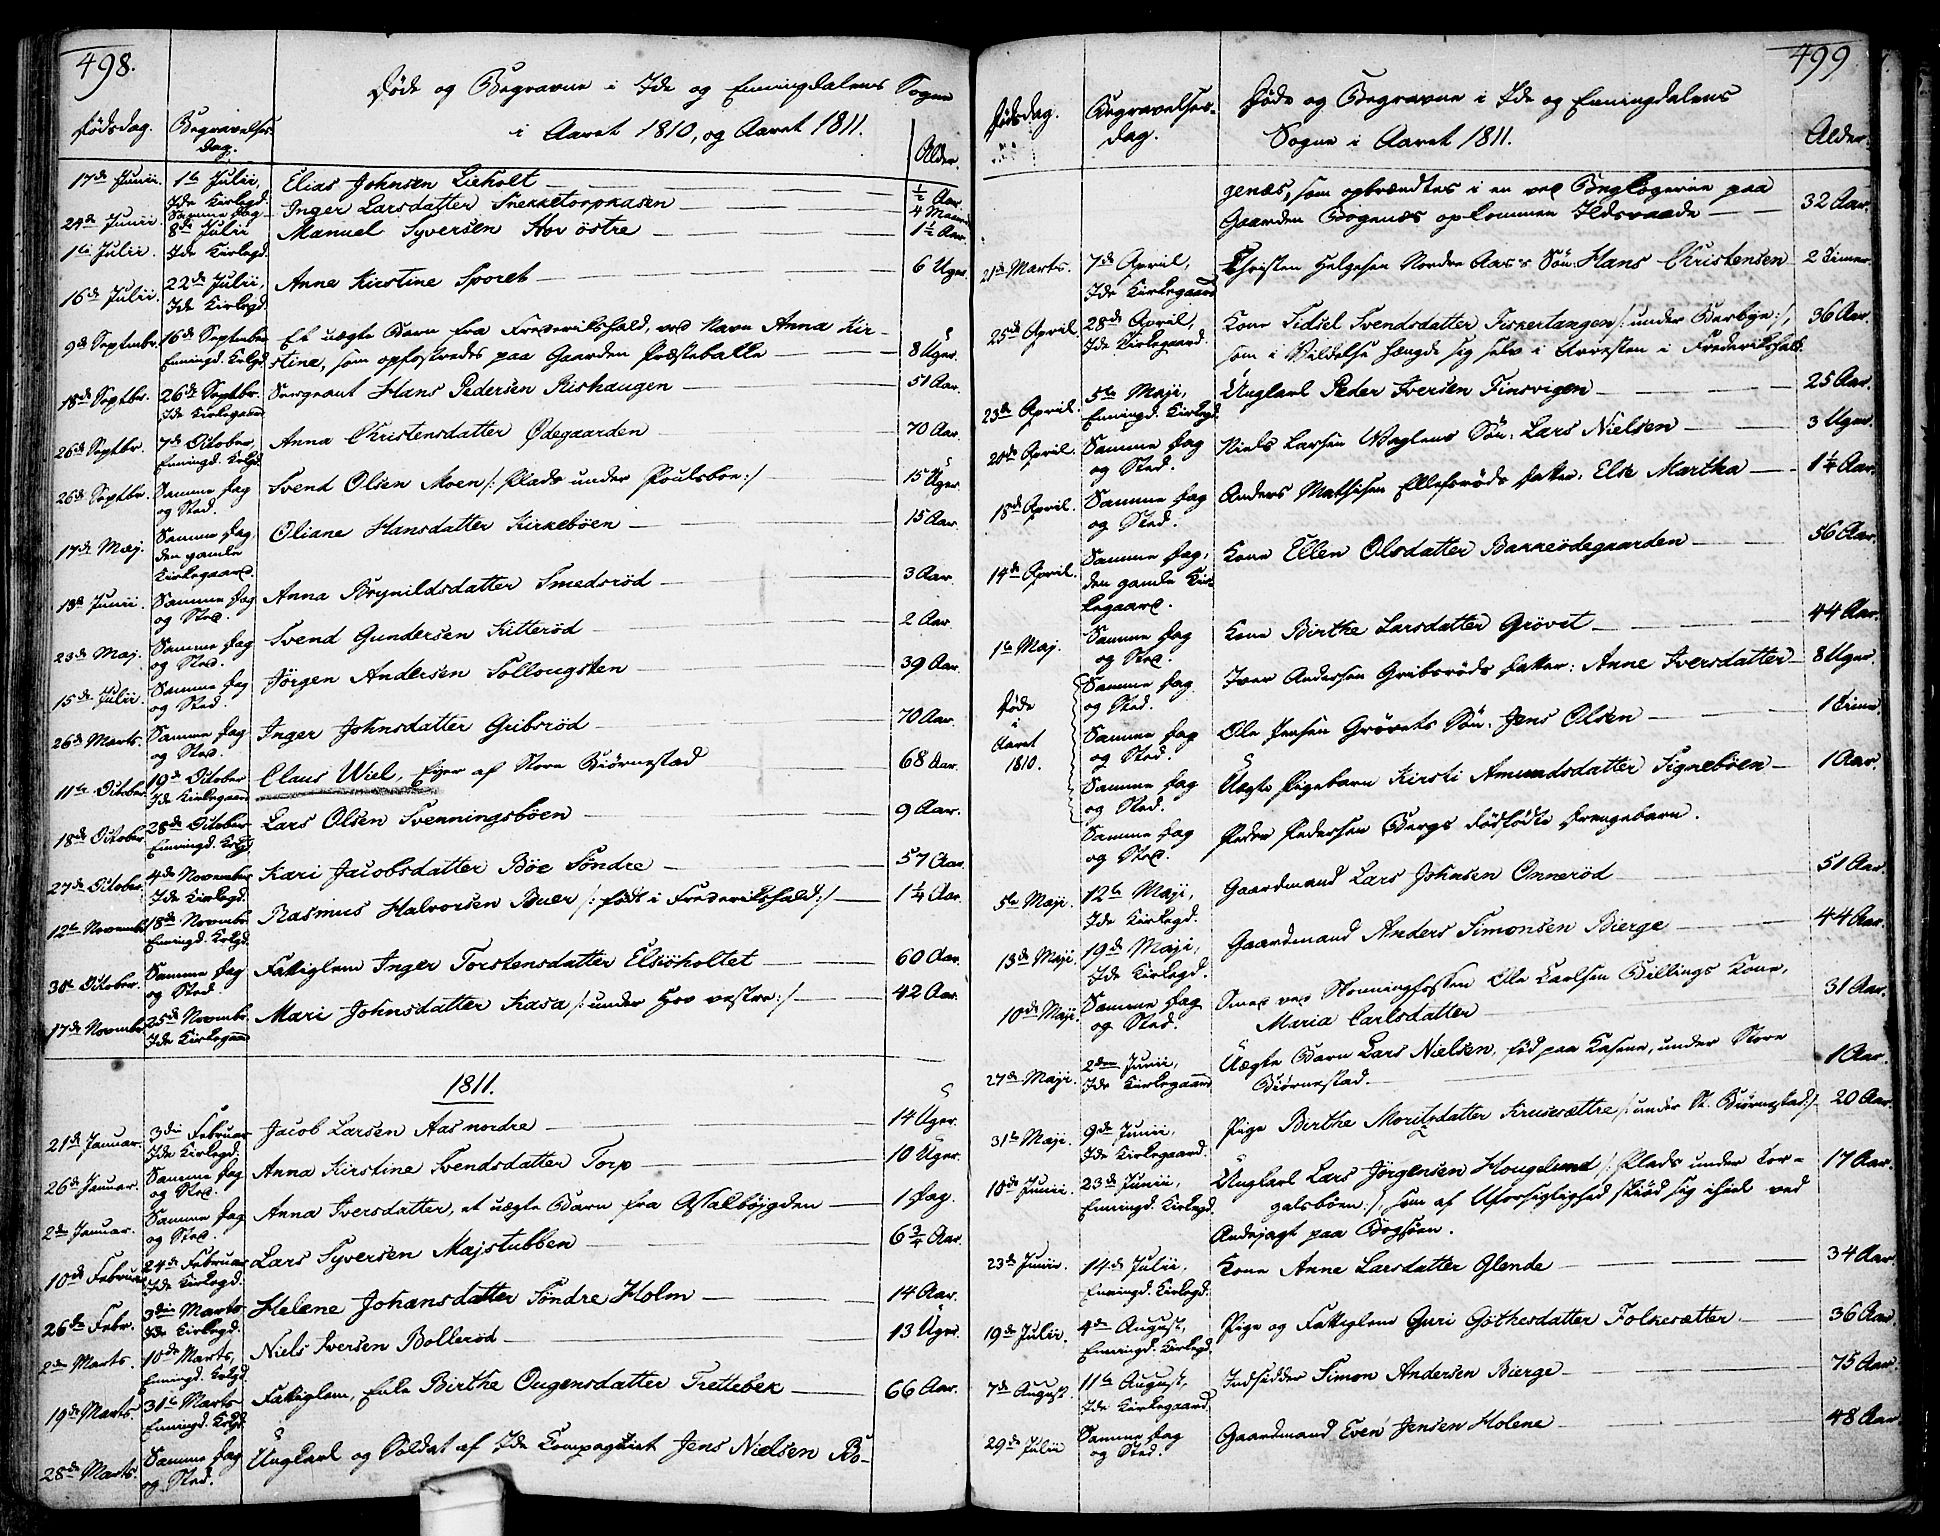 498.
Døde og Begravne i Ide og Enningdalens Sogne
i Aaret 1810, og Aaret 1811.
Dødsdag. Begravelses-
dag. Alder.
17de Junii. 1te Julii, Elias Johnsen Lieholt — ½ Aar.
Ide Kirkegd.
24de Junii. Samme Dag — Inger Larsdatter Snekketorpkasen — 4 Maan.
1te Julii. 8de Julii Manuel Syversen Hov östre — 1½ Aar.
Ide Kirkegd.
16de Julii. 22de Julii, Anne Kirstine Sporet — 6 Uger.
Ide Kirkegd.
9de Septembr. 16de September Et uægte Barn fra Frederikshald, ved Navn Anna Kir-
Enningd. Kirkgd. stine, som opfostredes paa Gaarden Præsteballe — 8 Uger.
18de Septbr. 26de Septbr. Sergeant Hans Pedersen Rishaugen — 51 Aar.
Ide Kirkegaard
26de Septbr. 7de October, Anna Christensdatter Ødegaarden — 70 Aar.
Enningd. Kirkgd.
26de Septbr. Samme Dag Svend Olsen Moen /: Plads under Poulsboe :/ — 15 Uger.
og Sted.
17de Maj. Samme Dag, Oliane Hansdatter Kirkebøen — 15 Aar.
den gamle
Kirkegaard.
13de Junii. Samme Dag Anna Brynildsdatter Smedsröd — 3 Aar.
og Sted.
23de Maj. Samme Dag Svend Gundersen Kitteröd — 2 Aar.
og Sted.
15de Julii. Samme Dag Jörgen Andersen Sollougsten — 39 Aar.
og Sted.
26de Marts. Samme Dag Inger Johnsdatter Gribsröd — 70 Aar.
og Sted.
11te October. 19de October Claus Wiel, Ejer af Store Biørnestad 68 Aar.
Ide Kirkegaard
18de October. 28de October Lars Olsen Svenningsböen — 9 Aar.
Enningd. Kirkgd.
27de October. 4de November Kari Jacobsdatter Böe Söndre — 57 Aar.
Ide Kirkegd.
12te Novembr. 18de Novembr Rasmus Halvorsen Buer /: født i Frederikshald :/ — 1¼ Aar.
Enningd. Kirkgd.
30te October. Samme Dag Fattiglem Inger Torstensdatter Elsiöholtet — 60 Aar.
og Sted.
17de Novembr. 25de Novembr. Mari Johnsdatter Kasa /: under Hov vestre :/ — 42 Aar.
Ide Kirkegaard
1811.
21de Januar. 3die Februar Jacob Larsen Aas nordre — 14 Uger.
Ide Kirkegd.
26de Januar. Samme Dag Anna Kirstine Svendsdatter Torp — 10 Uger.
og Sted.
2den Januar. Samme Dag Anna Iversdatter, et uægte Barn fra — 1 Dag.
og Sted.
10de Februar 24de Februar Lars Syversen Majstubben — 6¾ Aar.
Ide Kirkegd.
26de Febr. 3die Marts Helene Johansdatter Söndre Holm — 14 Aar.
Ide Kirkegd.
2den Marts. 10de Marts, Niels Iversen Bolleröd — 13 Uger.
Enningd. Kirkgd.
19de Marts. 31te Marts Fattiglem, Enke Birthe Ougensdatter Trettebek — 66 Aar.
Enningd. Kirkgd.
28de Marts. Samme Dag Ungkarl og Soldat af Ide Compagniet Jens Nielsen Bö-
og Sted.
499
Dødsdag. Begravelses-
dag. Døde og Begravne i Ide og Enningdalens
Sogne i Aaret 1811. Alder.
genæs, som opbrændtes i en ved paa
Gaarden Bögenæs opkommen Ildsvaade — 32 Aar.
21de Marts. 7de April, Christen Helgesen Nordre Aas's Sön: Hans Christensen 2 Timer.
Ide Kirkegaard
25de April 28de April, Kone Sidsel Svendsdatter Fiskertangen /: under Berbye :/ 36 Aar.
Ide Kirkegaard. som i Vildelse hængde sig selv i Arresten i Frederikshald.
23de April. 5te Maji, Ungkarl Peder Iversen Finsvigen — 25 Aar.
Enningd. Kirkegd.
20de April. Samme Dag Niels Larsen Vaglens Sön: Lars Nielsen — 3 Uger.
og Sted.
18de April. Samme Dag Anders Mathisen Ellefsröds Datter: Else Martha — 1¼ Aar.
og Sted.
14de April. Samme Dag, Kone Ellen Olsdatter Bakkeödegaarden — 56 Aar.
den gamle Kir-
kegaard.
1te Maj. Samme Dag Kone Birthe Larsdatter Grövet — 44 Aar.
og Sted.
Døde
i
Aaret
1810. Samme Dag Iver Andersen Gribsröds Datter: Anne Iversdatter — 8 Uger.
og Sted.
Samme Dag Ole Jensen Grövets Sön: Jens Olsen — 1 Time.
og Sted.
Samme Dag Uægte Pigebarn Kirsti Amundsdatter Signeböen — 1 Aar.
og Sted.
Samme Dag Peder Pedersen Bergs dødfødte Drengebarn.
og Sted.
5te Maji. 12te Maji, Gaardmand Lars Johnsen Onneröd — 51 Aar.
Ide Kirkegd.
13de Maji. 19de Maji, Gaardmand Anders Simonsen Bierge — 44 Aar.
Ide Kirkegd.
10de Maji. Samme Dag Smed ved Ole Carlsen Billings Kone,
og Sted. Maria Carlsdatter — 31 Aar.
27de Maji. 2den Junii, Uægte Barn Lars Nielsen, fød paa Kasene, under Store
Ide Kirkegaard Biørnestad. — 1 Aar.
31te Maji. 9de Junii, Pige Birthe Moritsdatter Krusesættre /: under St. Biørnestad :/ 20 Aar.
Ide Kirkegaard.
10de Junii. 23de Junii, Ungkarl Lars Jörgensen Hougelund /: Plads under Tor- 17 Aar.
Enningd. Kirkegd. galsböen :/, som af Uforsigtighed skiød sig ihiel ved
Andejagt paa Bogsøen.
23de Junii. 14de Julii, Kone Anne Larsdatter Glende — 34 Aar.
Enningd. Kirkegd.
19de Julii. 4de August, Pige og Fattiglem Guri Göthesdatter Folkesætter — 36 Aar.
Enningd. Kirkegd.
7de August. 11te August, Indsidder Simon Andersen Bierge — 75 Aar.
Ide Kirkegaard
29de Julii Samme Dag Gaardmand Even Jensen Holene — 48 Aar
og Sted.